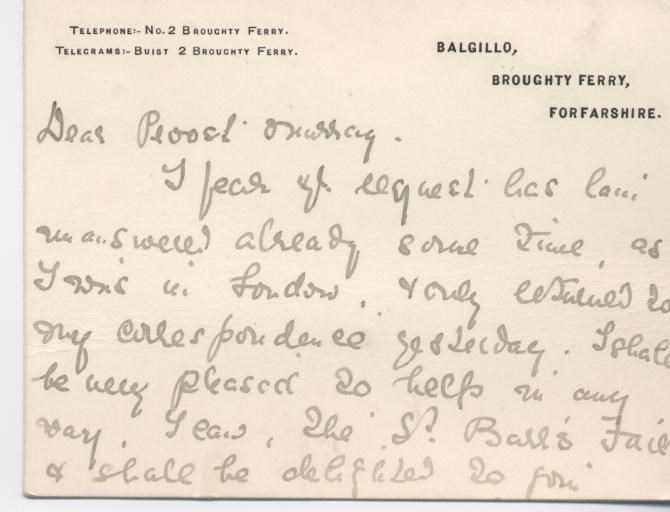 TELEPHONE:- NO. 2 BROUGHTY FERRY.
TELEGRAMS:- BUIST 2 BROUGHTY FERRY.
BALGILLO,
BROUGHTY FERRY,
FORFARSHIRE.
Dear Provost Murray.
I fear yr. request has lain
unanswered already some time, as
I was in London, & only returned to
my correspondence yesterday. I shall
be very pleased to help in any
way, I can, the St. Fair
& shall be delighted to join